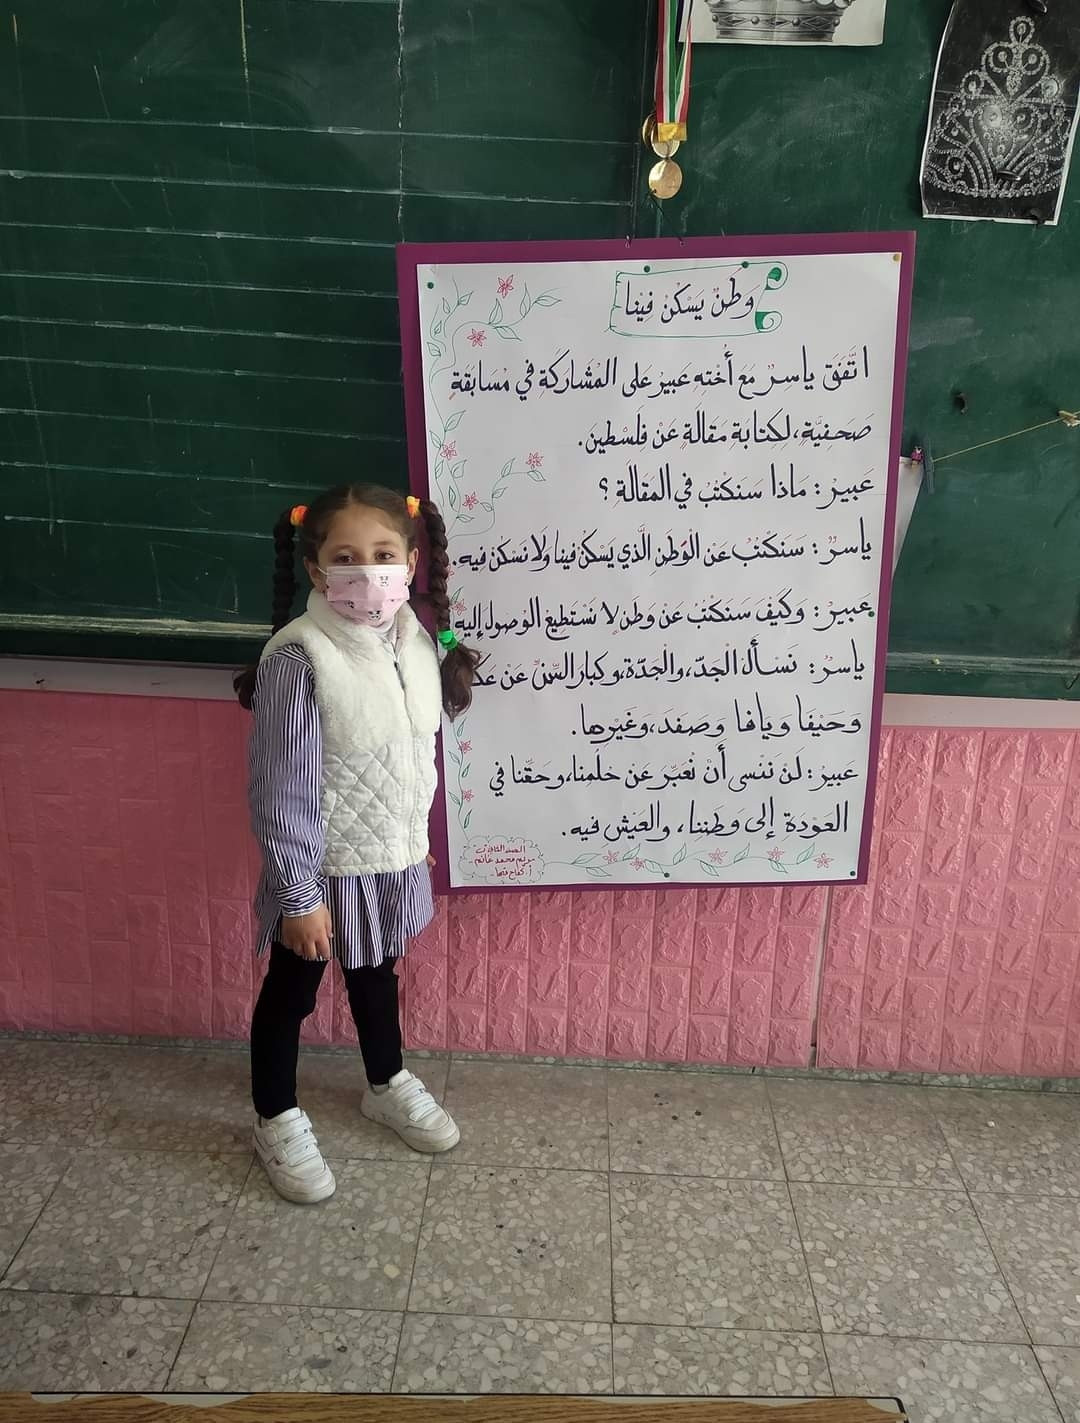 وَطَنٌ يَسْكُنُ فِينا
اتَّفَقَ ياسِرٌ مَعَ أُخْتِهِ عَبيرَ عَلى المُشارَكَةِ في مُسابَقَةٍ
صَحَفِيَّةٍ، لِكِتابَةِ مَقالَةٍ عَنْ فِلَسْطينَ.
عَبيرُ : مَاذا سَنَكْتُبُ في المَقالَةِ ؟
ياسرٌ : سَنَكْتُبُ عَنِ الْوَطَنِ الَّذي يَسْكُنُ فينا وَلا نَسْكُنُ فيهِ.
عَبيرُ : وَكَيْفَ سَنَكْتُبُ عَنْ وَطَنٍ لا نَسْتَطيعُ الْوُصولَ إِلَيْهِ
ياسرُ : نَسْأَلُ الْجَدَّ، والْجَدَّةَ، وكِبارَ السِّنِّ عَنْ
وَحَيْفَا وَيافا وَصَفَدَ، وَغَيْرِها.
عَبيرُ : لَنْ نَنْسى أَنْ نُعَبِّرَ عَنْ حُلُمِنا، وَحَقِّنا في
العَوْدَةِ إِلى وَطَنِنا، والعَيْشِ فيهِ.
الصف الثاني
مريم محمد غانم
أ. كفاح